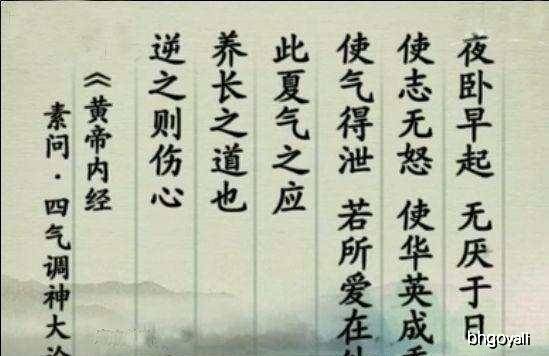 夜卧早起 无厌于日
使志无怒 使华英成
使气得泄 若所爱在
此夏气之应
养长之道也
逆之则伤心
《黄帝内经
素问·四气调神大
bhgoyali